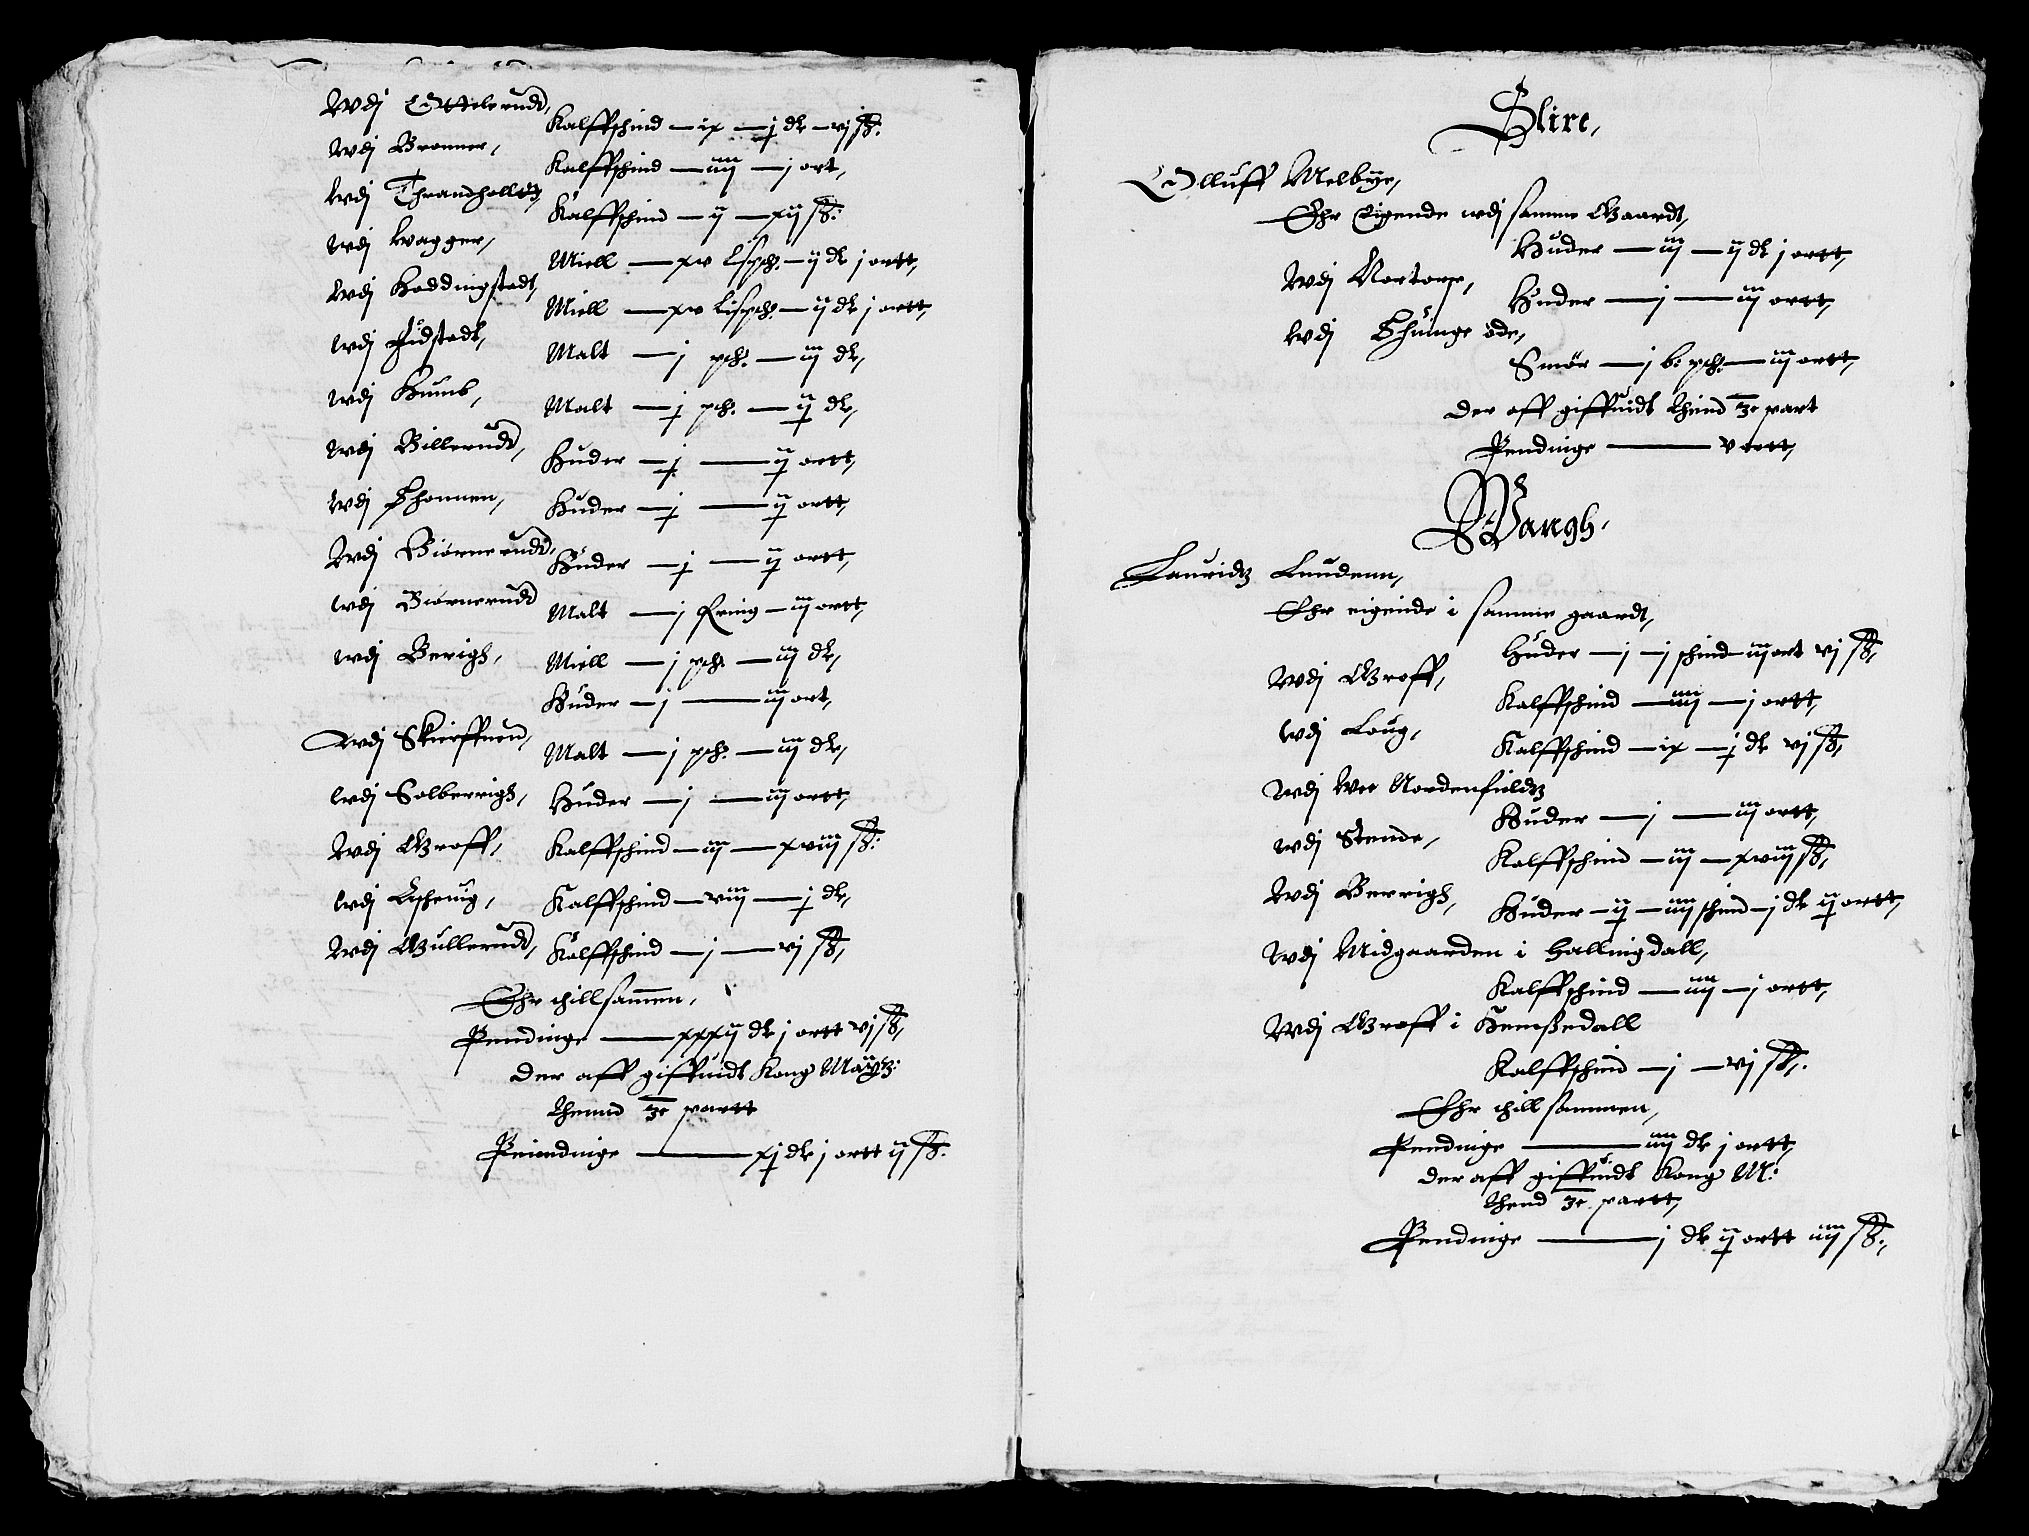 Wdj Ottelerudt,
Kalffschind — ix — j dlr — vj ß:
Wdj Bronner,
Kalffschind — iiij — j ort,
Wdj Thrandholltt,
Kalffschind — ij — xij ß:
Wdj Wagger,
Miell — xv Lispd. — ij dlr j ortt,
Wdj Hoddingstadt,
Miell — xv Lispd. — ij dlr j ortt,
Wdj Fidstadt,
Malt — j pd. — iij dlr,
Wdj Humb,
Malt — j pd. — ij dlr,
Wdj Billerudt,
Huder — j — ij ortt,
Wdj Thonnen,
Huder — j — ij ortt,
Wdj Biørnerudt,
Huder — j — ij ortt,
Wdj Biørnerudt
Malt — j fring — iij ortt,
Wdj Berigh,
Miell — j pd. — iij dlr,
Huder — j — iij ort,
Wdj Skieffuen,
Malt — j pd. — iij dlr,
Wdj Solberrigh,
Huder — j — iij ortt,
Wdj Groff,
Kalffschind — iij — xviij ß:
Wdj
Kalffschind — viij — j dlr,
Wdj Gullerudt,
Kalffschind — j — vj ß,
Ehr thillsamen,
Pendinge — xxxij dlr j ortt vj ß,
der aff giffuidt Kong Maytz:
thennd 3e partt
Peiendinge — xj dlr j ortt ij ß.
Slire,
Olluff Melbye,
Ehr Eigende wdj samme Gaardt,
Huder — iij — ij dlr j ortt,
Wdj Nortorp,
Huder — j — iij ortt,
Wdj Thuinge øde,
Smør — j b. pd. — iij ortt,
der aff giffuidt thend 3e part
Pendinge — v ortt,
Wangh.
Lauridtz Leudenn,
Ehr eigeinde i samme gaardt,
Huder — j — j schind — iij ort vj ß,
Wdj Groff,
Kalffschind — iiij — j ortt,
Wdj Loug,
Kalffschind — ix — j dlr vj ß,
Wdj Wee Nordenfieldtz
Huder — j — iij ortt,
Wdj Stende,
Kalffschind — iij — xviij ß,
Wdj Berrigh,
Huder — ij — iiij schind — j dlr ij ortt,
Wdj Midgaarden i Hallingdall,
Kalffschind — iiij — j ortt,
Wdj Groff i Hemßedall
Kalffschind — j — vj ß.
Ehr thill sammen,
Pendinge — iiij dlr j ortt,
der aff giffuidt Kong M:
thend 3e. partt,
Pendinge — j dlr ij ortt iiij ß.